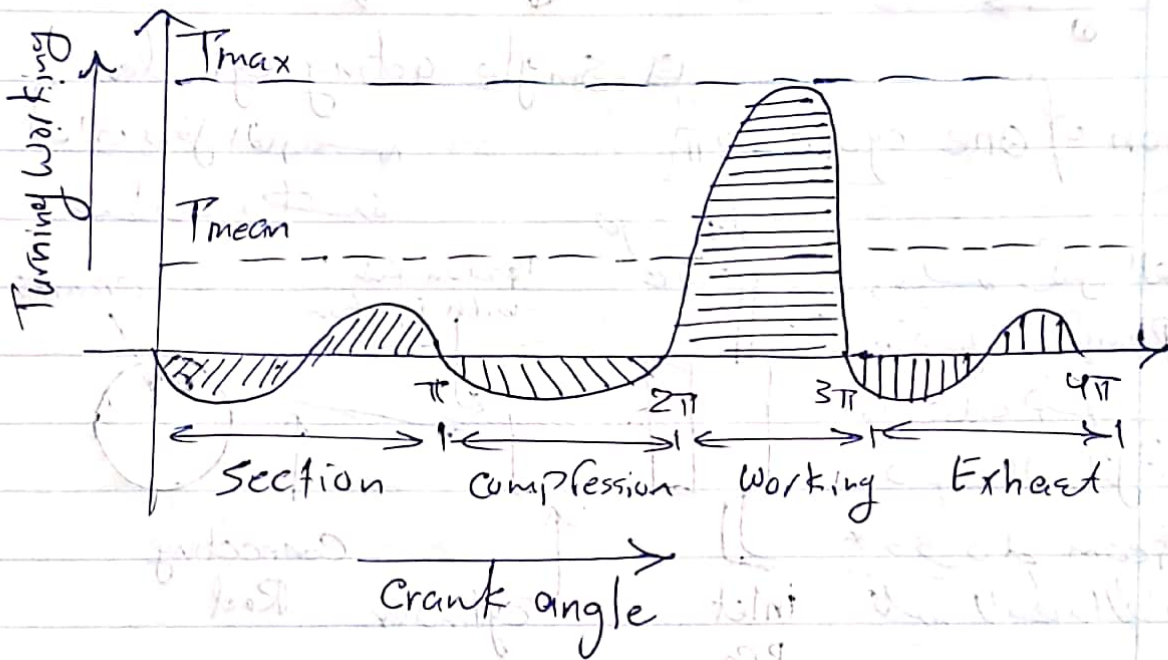 Turning Working
Tmax
Tmean
π
2π
3π
4π
Section
compression
working
Exhaest
Crank angle